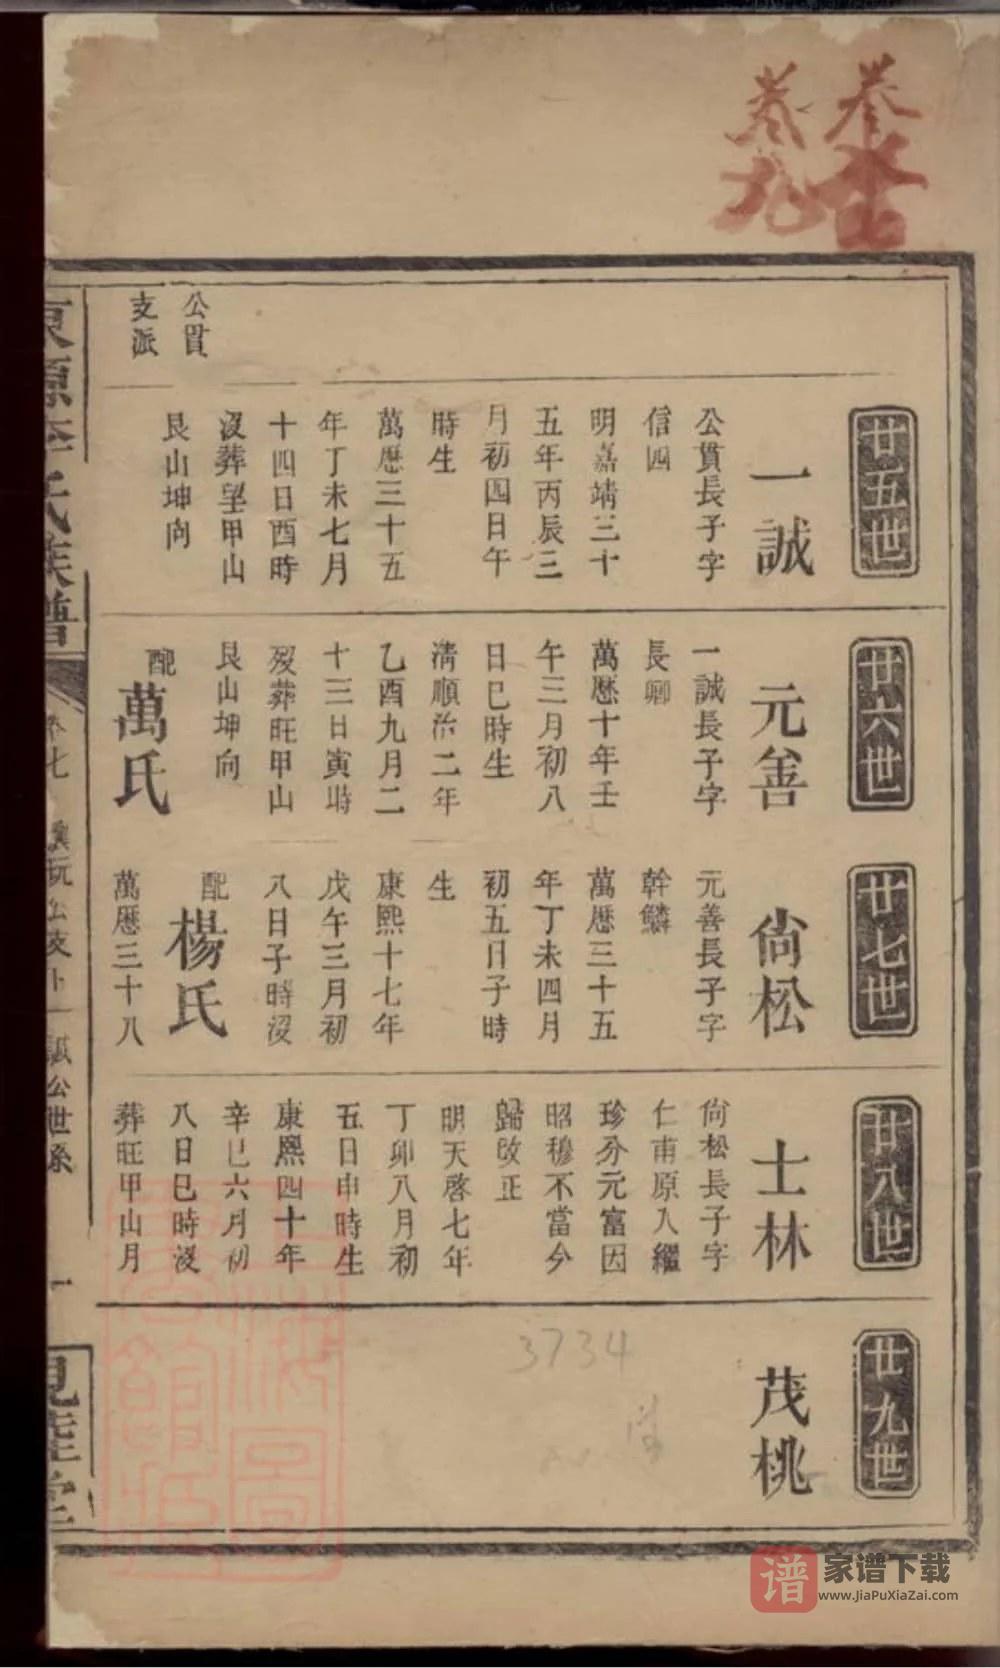 卷
卷九
公貫
支派
廿五世
一誠
公貫長子字
信四
明嘉靖三十
五年丙辰三
月初四日午
時生
萬歷三十五
年丁未七月
十四日酉時
沒葬望甲山
艮山坤向
廿六世
元善
一誠長子字
長卿
萬歷十年壬
午三月初八
日巳時生
清順治二年
乙酉九月二
十三日寅時
歿葬旺甲山
艮山坤向
配
萬氏
廿七世
尙松
元善長子字
幹鱗
萬歷三十五
年丁未四月
初五日子時
生
康熙十七年
戊午三月初
八日子時沒
配
楊氏
萬歷三十八
廿八世
士林
尙松長子字
仁甫原入繼
珍分元富因
昭穆不當今
歸改正
明天啓七年
丁卯八月初
五日申時生
康熙四十年
辛巳六月初
八日巳時沒
葬旺甲山月
廿九世
茂桃
3734
氏族譜
卷七
公世系
一
堂
谱
家谱下载
www.JiaPuXiaZai.com